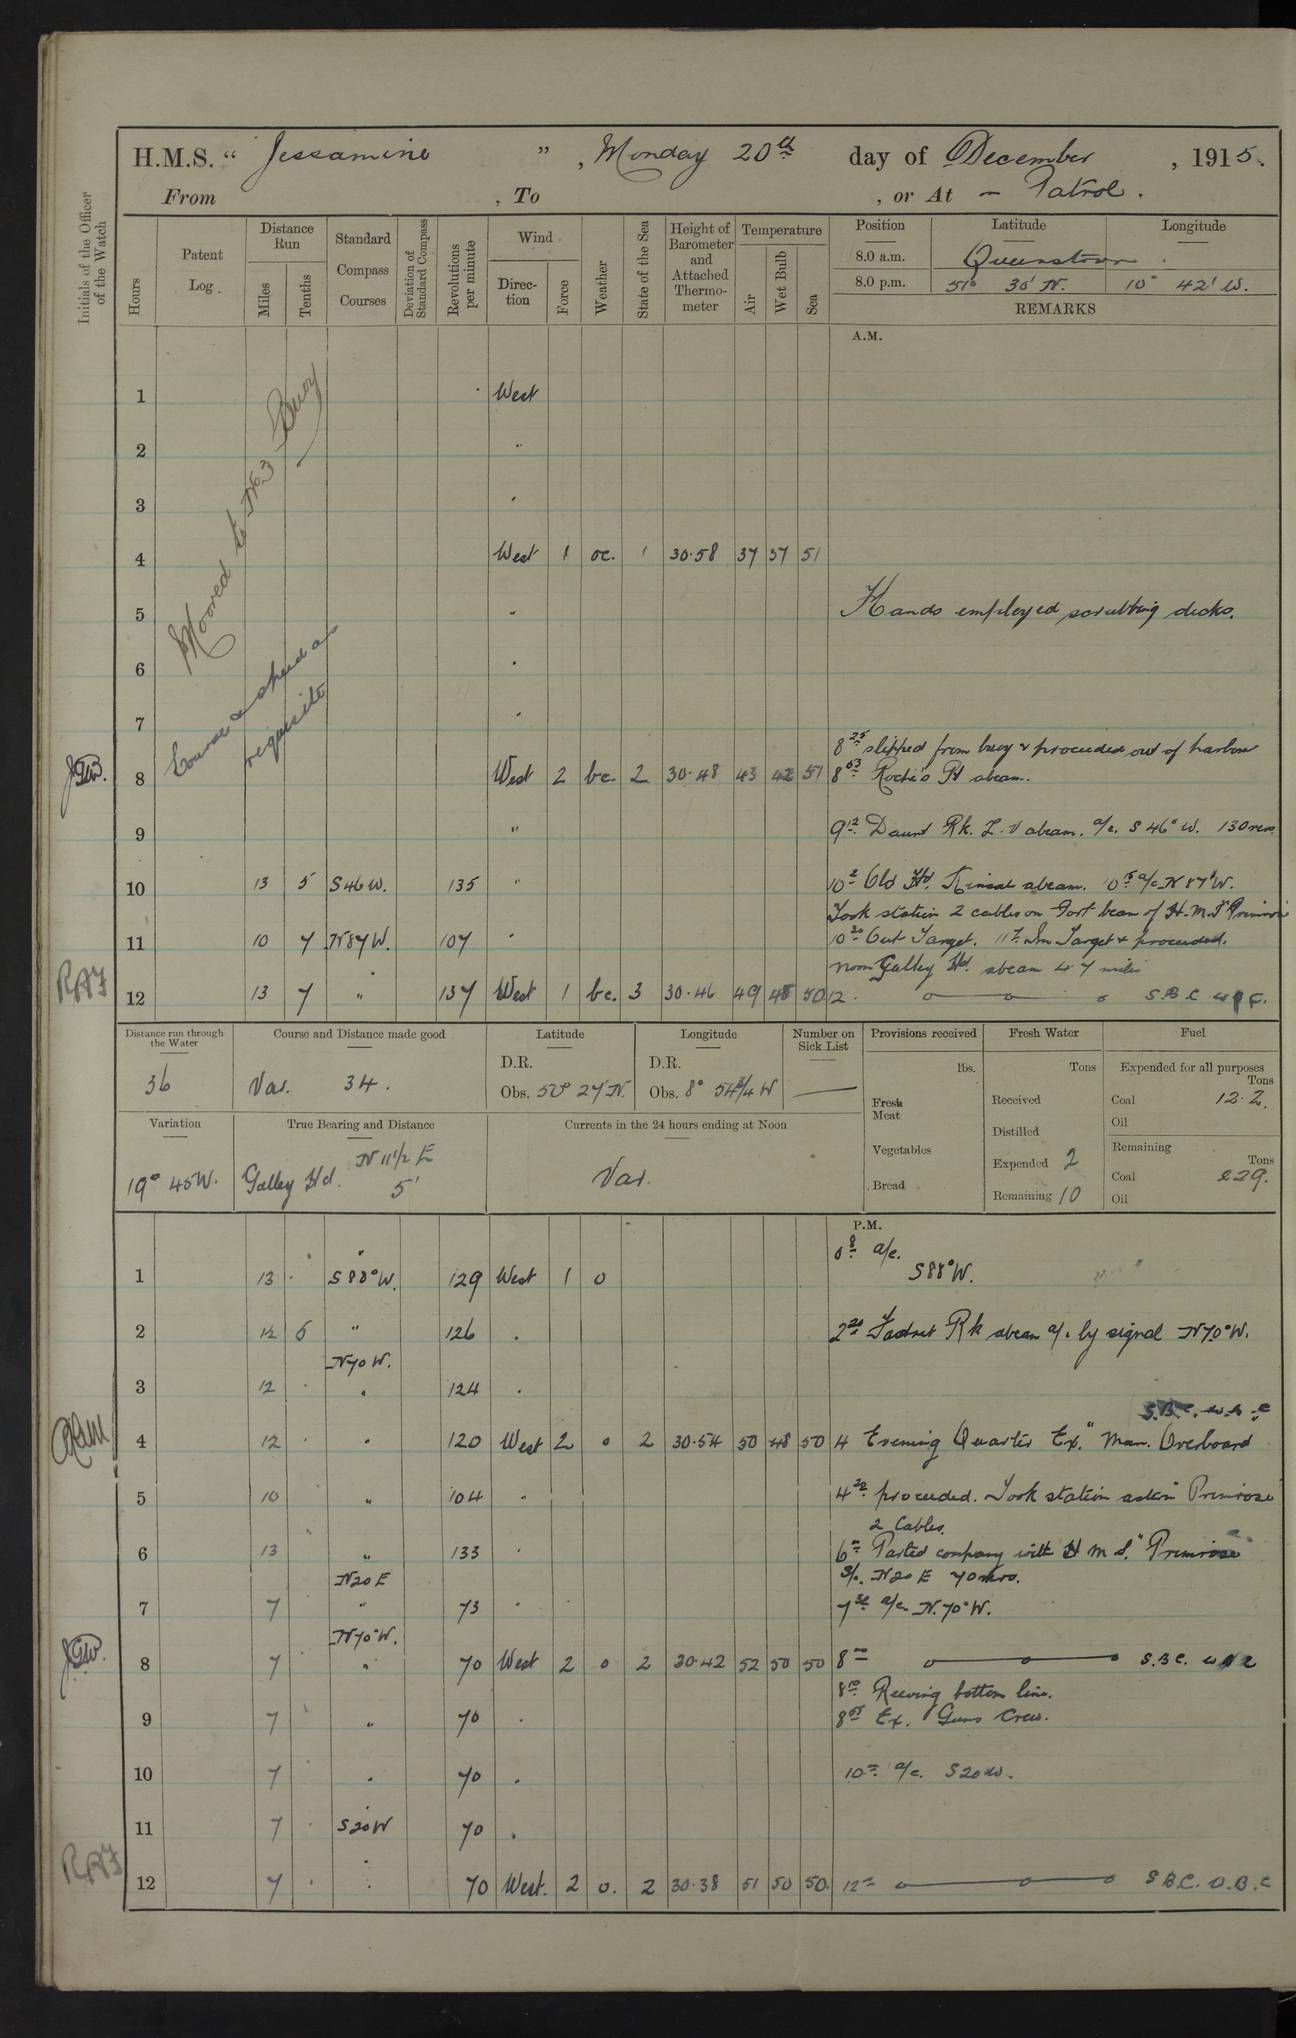 H.M.S. “ Jessamine ” , Monday 20th day of December , 1915.
From , To , or At – Patrol.
Initials of the Officer of the Watch
Hours
Patent Log.
Distance Run
Miles
Tenths
Standard Compass Courses
Deviation of Standard Compass
Revolutions per minute
Wind
Direction
Force
Weather
State of the Sea
Height of Barometer and Attached Thermometer
Temperature
Air
Wet Bulb
Sea
Position Latitude Longitude
8.0 a.m. Queenstown
8.0 p.m. 51° 30' N. 10° 42' W.
REMARKS
A.M.
Moored to No 3 Buoy
Course & speed as requisite
1 West
2 "
3 "
4 West 1 oc. 1 30.58 37 37 51
5 " Hands employed scrubbing decks.
6 "
7 "
8 25 slipped from buoy & proceeded out of harbour
J.G.W. 8 West 2 bc. 2 30.48 43 42 51 8 53 Roche's Pt abeam.
9 " 9 12 Daunt Rk. L.V abeam. a/c. S 46° W. 130 revs
10 13 5 S46W. 135 " 10 2 Old Hd. Kinsale abeam. 10 15 a/c N 87° W.
Took station 2 cables on Port beam of H.M.S "Primrose
11 10 7 N87W. 107 " 10 30 Out Target. 11 7 In Target & proceeded.
noon Galley Hd. abeam 4.7 miles
12 13 7 " 137 West 1 bc. 3 30.46 49 48 50 12. S.B.C
Distance run through the Water
36
Course and Distance made good
Var. 34.
Latitude
D.R.
Obs. 50° 27' N.
Longitude
D.R.
Obs. 8° 54 3/4 W
Number on Sick List
—
Provisions received
lbs.
Fresh Meat
Vegetables
Bread
Fresh Water
Tons
Received
Distilled
Expended 2
Remaining 10
Fuel
Expended for all purposes
Tons
Coal 12.2.
Oil
Remaining
Tons
Coal 229.
Oil
Variation
19° 45W.
True Bearing and Distance
Galley Hd. N 11 1/2 E 5'
Currents in the 24 hours ending at Noon
Var.
P.M.
0 8 a/c.
1 13 . S88°W. 129 West 1 0 S88°W.
2 12 5 " 126 . 2 20 Fastnet Rk abeam a/c by signal N70°W.
N70W.
3 12 . " 124 .
4 12 . " 120 West 2 0 2 30.54 50 48 50 4 Evening Quarters Ex. "Man Overboard
5 10 " 104 " 4 20 proceeded. Took station astern Primrose
2 Cables.
6 13 " 133 " 6 Parted company with H M S. "Primrose
N20E a/c. N20 E 70 revs.
7 7 " 73 " 7 30 a/c N.70°W.
N70°W.
J.G.W. 8 7 " 70 West 2 0 2 30.42 52 50 50 8 S.B.C.
8 10 Reeving bottom line.
9 7 " 70 . 8 Ex. Guns Crew.
10 7 " 70 . 10 a/c. S20W.
11 7 . S20W 70 .
12 7 . " 70 West. 2 0. 2 30.38 51 50 50. 12 S.B.C. O.B.C